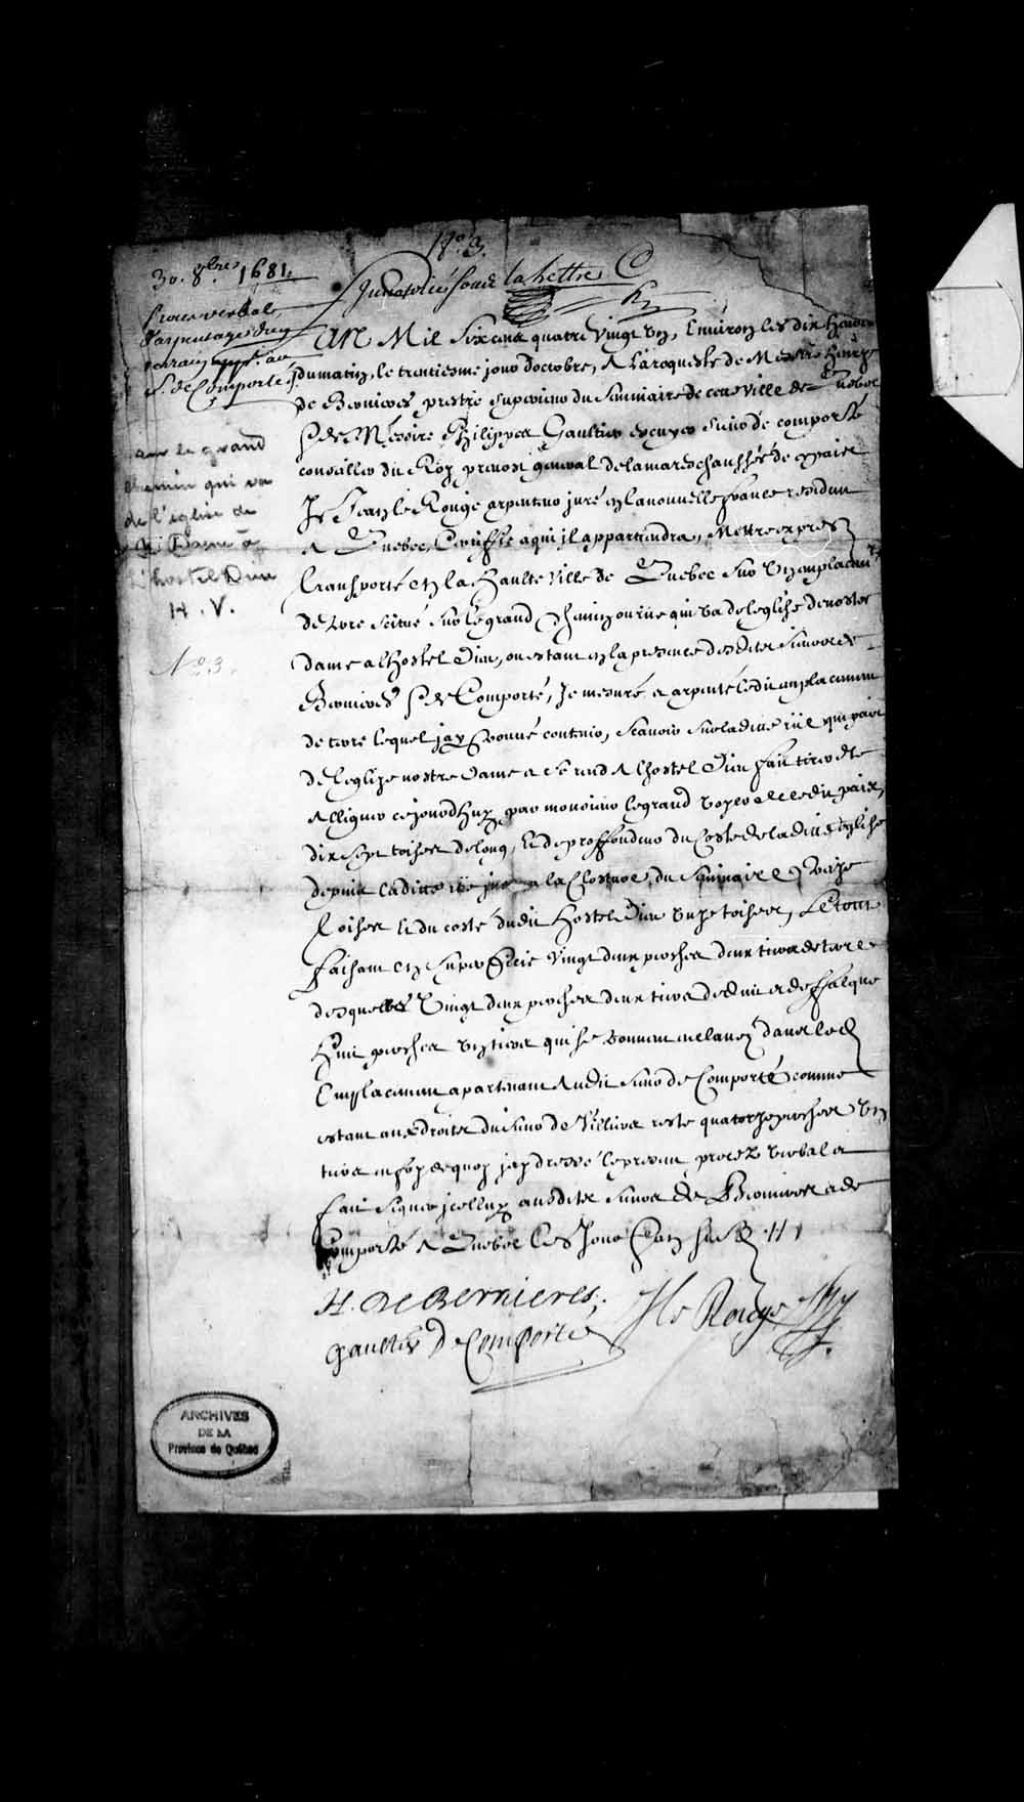 No. 3.
30. 8bres 1681.
Inventorié soubz la Lettre C
Proces verbal
d'arpentage d'un
terrain au
S. de Comporté
sur le grand
chemin qui va
de l'église de
N. Dame à
l'hostel Dieu
H. V.
No. 3.
L'An Mil Six cens quatre vingt un, Environ les dix heures
du matin, le trentiesme jour d'octobre, A la requeste de Messire Henry
de Bernieres prestre superieur du Seminaire de cette ville de Quebec
Et de Messire Philippes Gaultier escuyer sieur de comporté
conseiller du Roy prevost general de la mareschaussée de ce païs
Je Jean le Rouge arpenteur juré en la nouvelle france residant
A Quebec, Certiffie a qui il appartiendra, M'estre exprez
transporté en la haulte Ville de Quebec sur un emplacement
de terre scitué sur le grand chemin ou rue qui va de l'eglise de nostre
dame a l'hostel Dieu, ou estant en la presence desdits Sieurs de
Bernieres Et de Comporté, J'ay mesuré et arpenté ledit emplacement
de terre lequel j'ay trouvé contenir, Scavoir sur ladite rue qui part
de l'eglise nostre Dame et se rend A l'hostel Dieu
A lligner cejourdhuy par monsieur le grand voyer de cedit païs,
dix sept toises de long, Et de proffondeur du Costé de ladite Eglise
depuis ladite rue jusques a la Closture du Seminaire treize
toises Et du costé dudit hostel Dieu unze toises, Le tout
faisant en superficie vingt deux perches deux tiers de terre
desquelles Vingt deux perches deux tiers deduit et deffalqué
huit perches un tiers qui se trouvent enclavez dans led
Emplacement apartenant audit Sieur de Comporté comme
estant aux droits du Sieur de Villiers reste quatorze perches un
tiers en foy de quoy j'ay dressé le present procez verbal et
fait signer icelluy ausdits sieurs de Bernieres et de
Comporté A Quebec Les Jour Et an susd
H. de Bernieres,
J le Rouge
Gaultier De Comporté
ARCHIVES
DE LA
Province de Québec